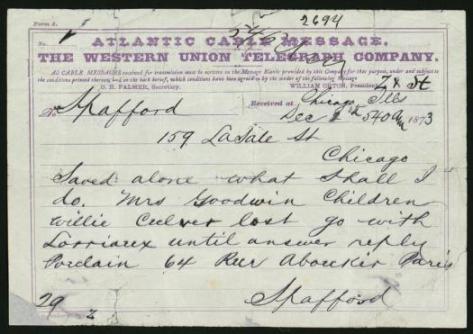 2694
Form A.
No.
ATLANTIC CABLE MESSAGE.
THE WESTERN UNION TELEGRAPH COMPANY.
ALL CABLE MESSAGES received for transmission must be written on the Message Blanks provided by this Company for that purpose, under and subject to
the conditions printed thereon, and on the back hereof, which conditions have been agreed to by the sender of the following Message.
O. H. PALMER, Secretary.
WILLIAM ORTON, President.
To Spafford
Received at Chicago Ills
Dec 540 am 1873
159 LaSale St
Chicago
Saved alone what shall I
do. Mrs Goodwin Children
Willie Culver lost go with
Lorriaux until answer reply
Porclain 64 Rue Aboukir Paris
Spafford
29